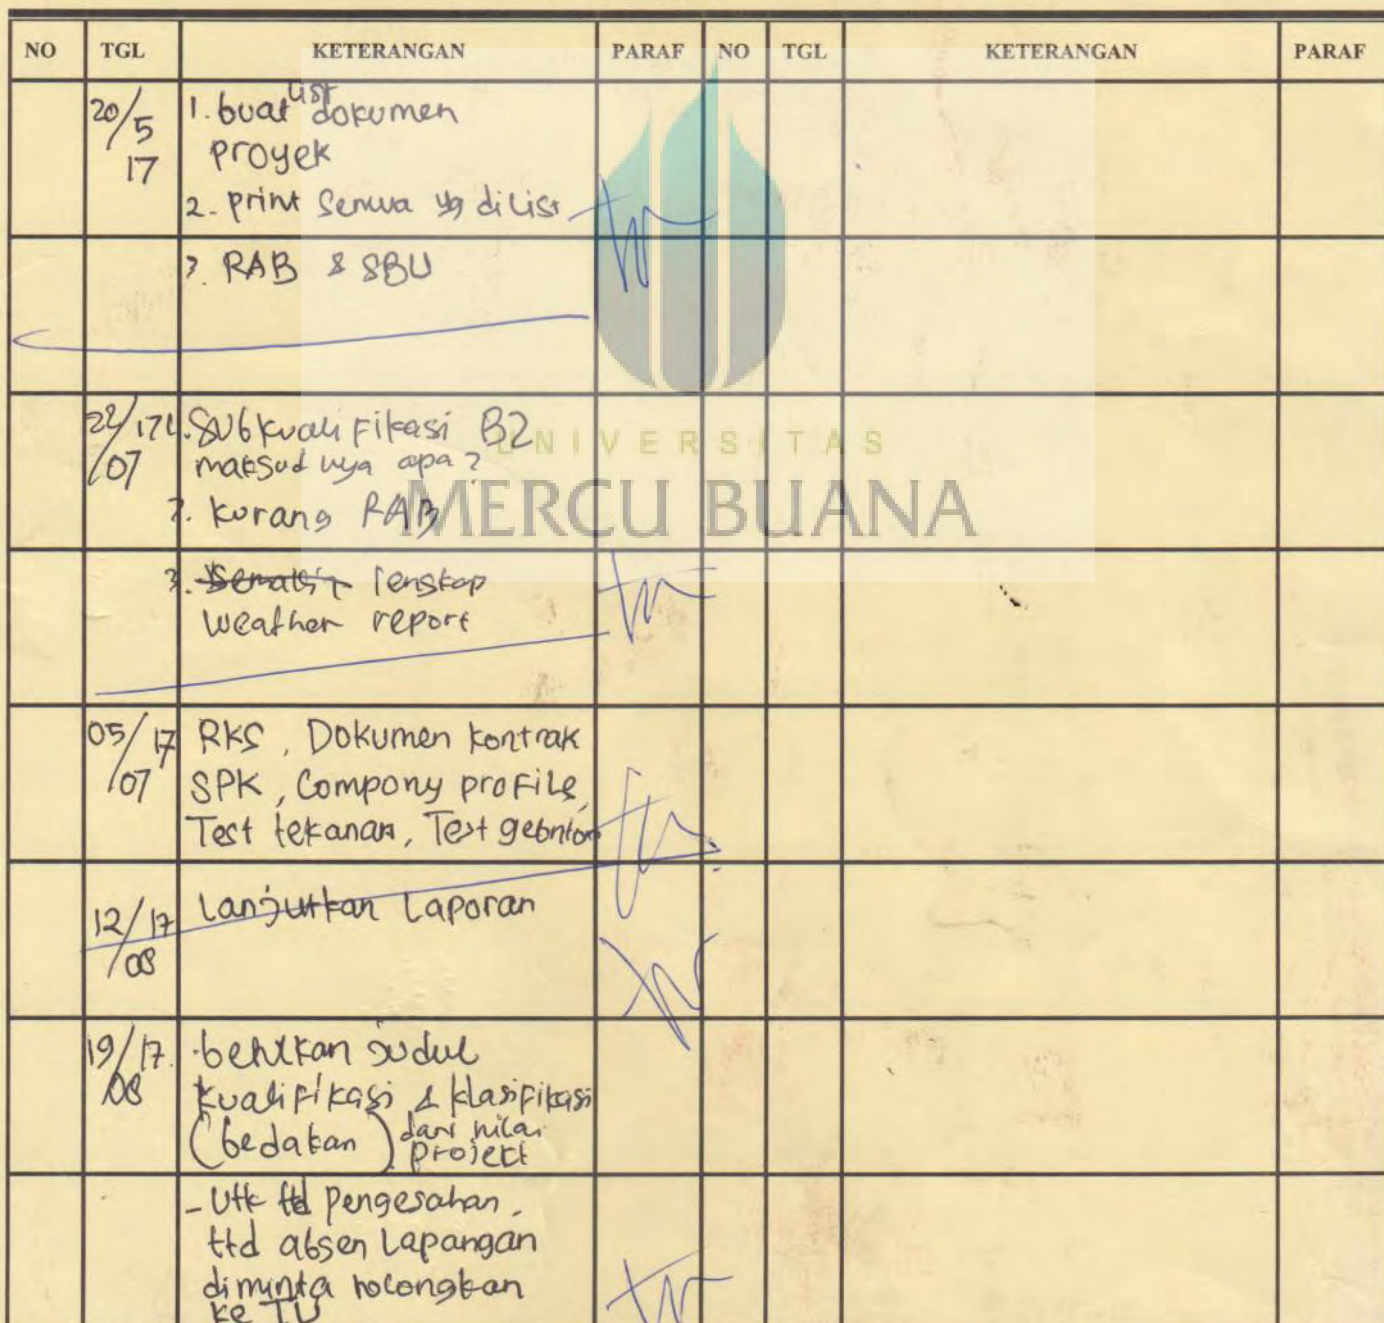 NO TGL KETERANGAN PARAF NO TGL KETERANGAN PARAF
20/5 17
1. buat list dokumen
proyek
2. print semua yg dilist
3. RAB & SBU
22/17
/07
1. Subkualifikasi B2
maksud nya apa?
2. kurang RAB
3. lengkap
weather report
UNIVERSITAS
MERCU BUANA
05/17
/07
RKS, Dokumen kontrak
SPK, Company profile,
Test tekanan, Test
12/17
/08
Lanjutkan Laporan
19/17.
/08
judul
kualifikasi & klasifikasi
(bedakan) dari nilai
project
- Utk ttd pengesahan,
ttd absen Lapangan
diminta
ke TU